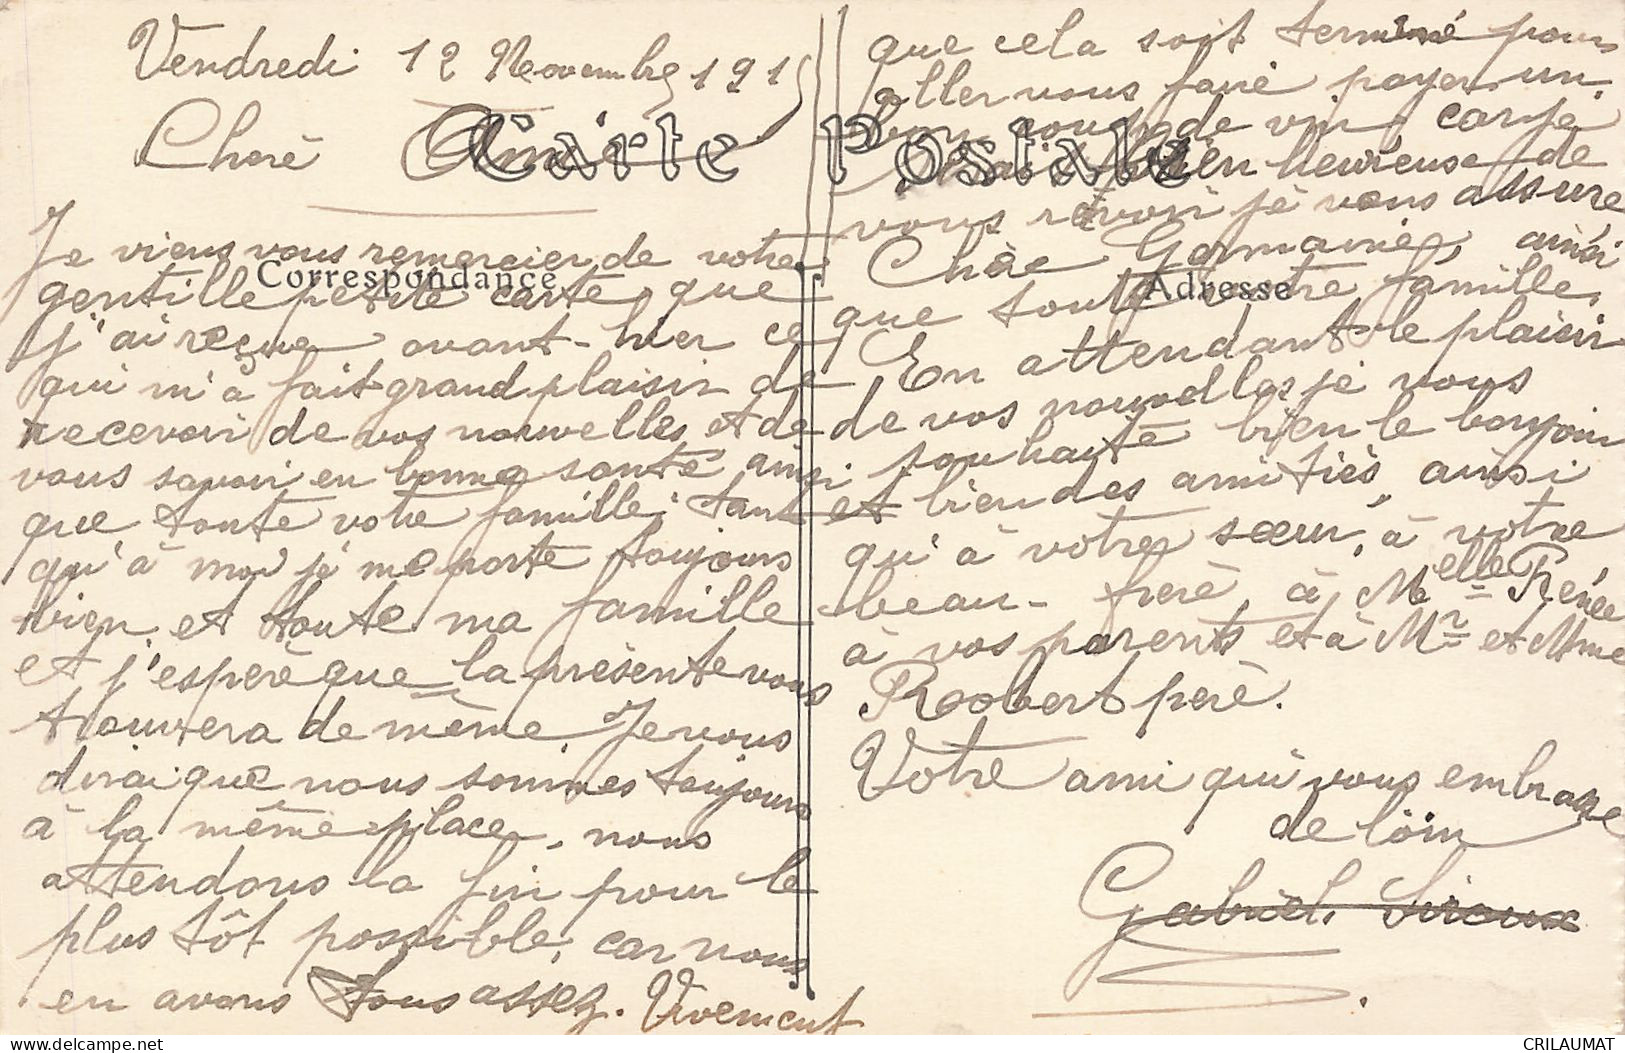 Vendredi 12 Novembre 1915
Carte Postale
Chère Amie
Correspondance
Je viens vous remercier de votre
gentille petite carte, que
j'ai reçue avant-hier ce
qui m'a fait grand plaisir de
recevoir de vos nouvelles et de
vous savoir en bonne santé ainsi
que toute votre famille; tant
qu'à moi je me porte toujours
bien et toute ma famille
et j'esperè que la présente vous
trouvera de même. Je vous
dirai que nous sommes toujours
à la même place, nous
attendons la fin pour le
plus tôt possible, car nous
en avons tous assez. Vivement
que cela soit terminé pour
aller vous fairè payer un
bon coup de vin, car je
serais bien heureuse de
vous revoir je vous assure
Chère Germaine, ainsi
Adresse
que toute votre famille.
En attendant le plaisir
de vos nouvelles je vous
souhaite bien le bonjour
et bien des amitiés, ainsi
qu'à votre sœur, à votre
beau-frerè, à Melle Rénée
à vos parents et à Mr et Mme
Robert perè.
Votre ami qui vous embrasse
de loin
Gabriel Siroux
CRILAUMAT